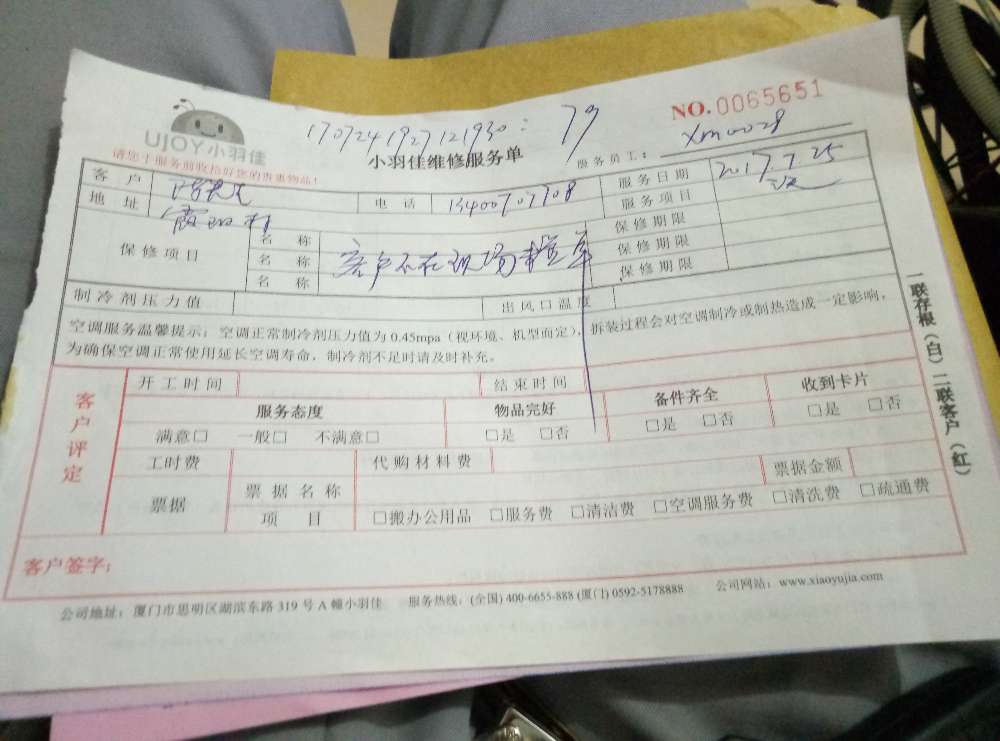 NO.0065651
UJOY小羽佳
请您于服务前收拾好您的贵重物品！
1707241927121930：79
小羽佳维修服务单
服务员工： xm0028
客户 电话 13400707708 服务日期 2017.7.25
地址 霞阳村 服务项目
保修项目 名称 保修期限
名称 客户不在现场 保修期限
名称 保修期限
制冷剂压力值 出风口温度
空调服务温馨提示：空调正常制冷剂压力值为0.45mpa（视环境、机型而定），拆装过程会对空调制冷或制热造成一定影响，
为确保空调正常使用延长空调寿命，制冷剂不足时请及时补充。
客户评定
开工时间 结束时间
服务态度 物品完好 备件齐全 收到卡片
满意□ 一般□ 不满意□ □是 □否 □是 □否 □是 □否
工时费 代购材料费 票据金额
票据 票据名称
项目 □搬办公用品 □服务费 □清洁费 □空调服务费 □清洗费 □疏通费
客户签字：
一联存根（白）二联客户（红）
公司地址：厦门市思明区湖滨东路319号A幢小羽佳 服务热线：(全国) 400-6655-888 (厦门) 0592-5178888 公司网站：www.xiaoyujia.com